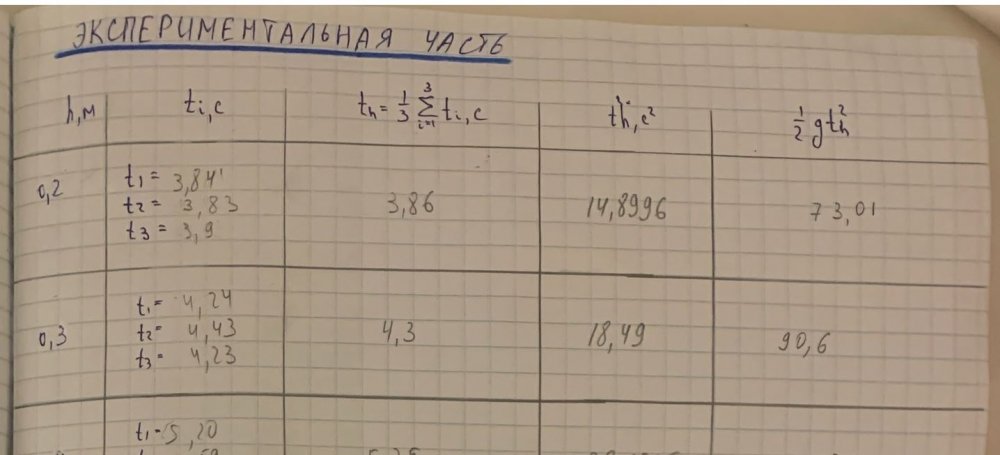 ЭКСПЕРИМЕНТАЛЬНАЯ ЧАСТЬ
h,м ti,c th = 1/3 ∑(i=1..3) ti,c th²,c² 1/2 gth²
0,2
t1 = 3,84
t2 = 3,83
t3 = 3,9
3,86 14,8996 73,01
0,3
t1= 4,24
t2= 4,43
t3= 4,23
4,3 18,49 90,6
t1-5,20